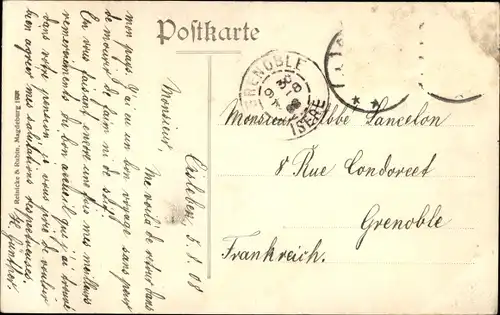 Postkarte
GRENOBLE
ISERE
5.1.08
Monsieur
Me voilà de retour dans
mon pays. J'ai eu un bon voyage sans peur
de mourir de faim ni de
En vous faisant encore une fois mes meilleurs
remerciements du bon accueil que j'ai trouvé
dans votre pension je vous prie de vouloir
bien agréer mes salutations respectueuses.
Monsieur Abbé Lancelon
8 Rue Condorcet
Grenoble
Frankreich.
Reinicke & Rubin, Magdeburg